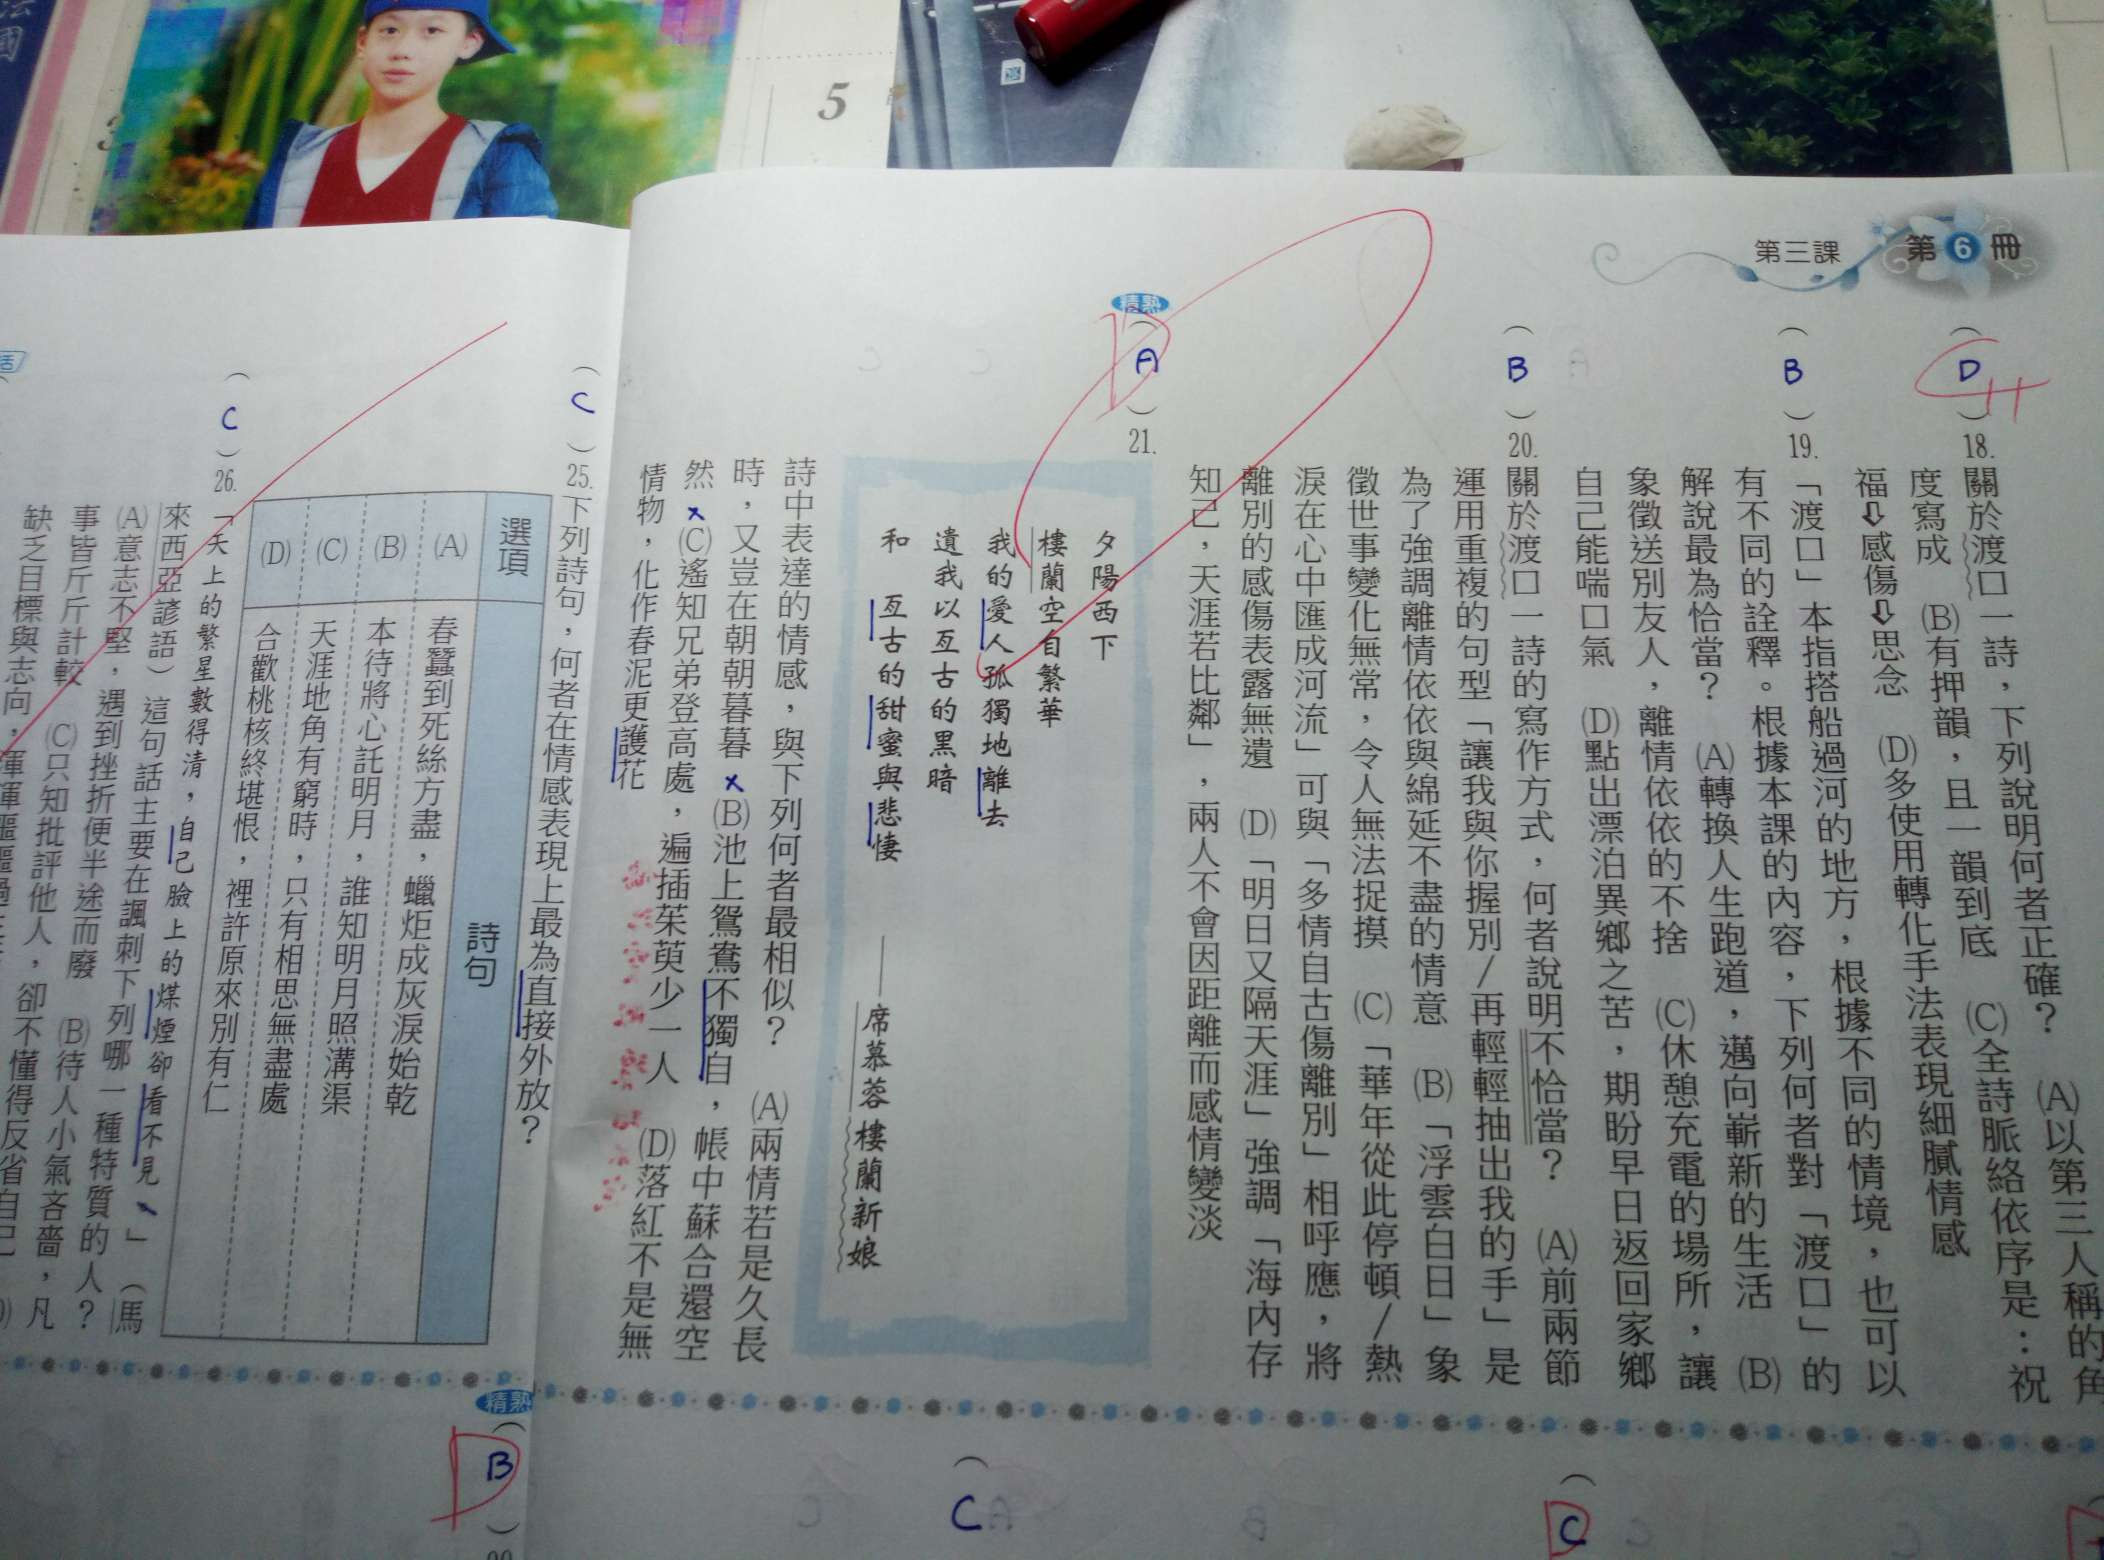 第三課 第6冊
(D)18.關於渡口一詩，下列說明何者正確？ (A)以第三人稱的角
度寫成 (B)有押韻，且一韻到底 (C)全詩脈絡依序是：祝
福⇨感傷⇨思念 (D)多使用轉化手法表現細膩情感
(B)19.「渡口」本指搭船過河的地方，根據不同的情境，也可以
有不同的詮釋。根據本課的內容，下列何者對「渡口」的
解說最為恰當？ (A)轉換人生跑道，邁向嶄新的生活 (B)
象徵送別友人，離情依依的不捨 (C)休憩充電的場所，讓
自己能喘口氣 (D)點出漂泊異鄉之苦，期盼早日返回家鄉
(B)20.關於渡口一詩的寫作方式，何者說明不恰當？ (A)前兩節
運用重複的句型「讓我與你握別／再輕輕抽出我的手」是
為了強調離情依依與綿延不盡的情意 (B)「浮雲白日」象
徵世事變化無常，令人無法捉摸 (C)「華年從此停頓／熱
淚在心中匯成河流」可與「多情自古傷離別」相呼應，將
離別的感傷表露無遺 (D)「明日又隔天涯」強調「海內存
知己，天涯若比鄰」，兩人不會因距離而感情變淡
精熟
D
(A)21.
夕陽西下
樓蘭空自繁華
我的愛人孤獨地離去
遺我以亙古的黑暗
和 亙古的甜蜜與悲悽
——席慕蓉樓蘭新娘
詩中表達的情感，與下列何者最相似？ (A)兩情若是久長
時，又豈在朝朝暮暮 x (B)池上鴛鴦不獨自，帳中蘇合還空
然 x (C)遙知兄弟登高處，遍插茱萸少一人 (D)落紅不是無
情物，化作春泥更護花
(C)25.下列詩句，何者在情感表現上最為直接外放？
選項 詩句
(A) 春蠶到死絲方盡，蠟炬成灰淚始乾
(B) 本待將心託明月，誰知明月照溝渠
(C) 天涯地角有窮時，只有相思無盡處
(D) 合歡桃核終堪恨，裡許原來別有仁
(C)26.「天上的繁星數得清，自己臉上的煤煙卻看不見。」（馬
來西亞諺語）這句話主要在諷刺下列哪一種特質的人？
(A)意志不堅，遇到挫折便半途而廢 (B)待人小氣吝嗇，凡
事皆斤斤計較 (C)只知批評他人，卻不懂得反省自己
缺乏目標與志向，渾渾噩噩
精熟
D
(B)
(C
D
(C
5